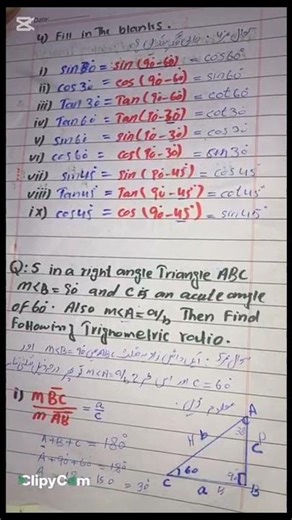 CapCut
4) Fill in the blanks.
i) sin30 = sin(90-60) = cos60°
ii) cos30 = cos(90-60) = sin60
iii) Tan30 = Tan(90-60) = cot60
iv) Tan60 = Tan(90-30) = cot30
v) sin60 = sin(90-30) = cos30
vi) cos60 = cos(90-30) = sin30
vii) sin45 = sin(90-45) = cos45
viii) Tan45 = Tan(90-45) = cot45
ix) cos45 = cos(90-45) = sin45°
Q:5 in a right angle Triangle ABC
m∠B=90 and C is an acute angle
of 60. Also m∠A=a/b Then Find
Following Trignometric radio.
i) mBC/mAB = a/c
A+B+C=180
A+90+60=180
=30
A
30
b
60
90
C
a
B
ClipyCam